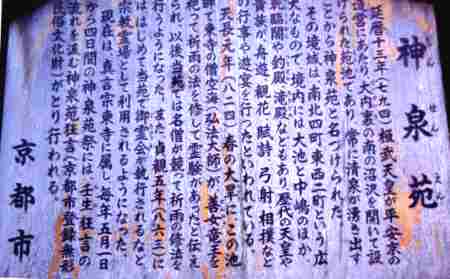 神泉苑
しんせんえん
延暦十三年（七九四）桓武天皇が平安京の
造営にあたり、大内裏の南の沼沢を開いて設
けられた苑池であり、常に清泉が湧き出す
ことから神泉苑と名づけられた。
その境域は南北四町東西二町という広
大なもので、境内には大池と中嶋のほか、
乾臨閣や釣殿、滝殿などもあり、歴代の天皇や
貴族が、舟遊、観花、賦詩、弓射、相撲など
の行事や遊宴を行ったといわれている。
天長元年（八二四）春の大旱にこの池
畔で東寺の僧空海（弘法大師）が、善女竜王を
祀って祈雨の法を修して霊験があったと伝え
られ、以後当苑では名僧が競って祈雨の修法を
行うようになった。また、貞観五年（八六三）に
は、はじめて当苑で御霊会が執行されるなど、
宗教霊場として利用されるようになった。
現在は、真言宗東寺に属し、毎年五月一日
から四日間の神泉苑祭には、壬生狂言の
流れを汲む神泉苑狂言（京都市登録無形
民俗文化財）がとり行われる。
京都市